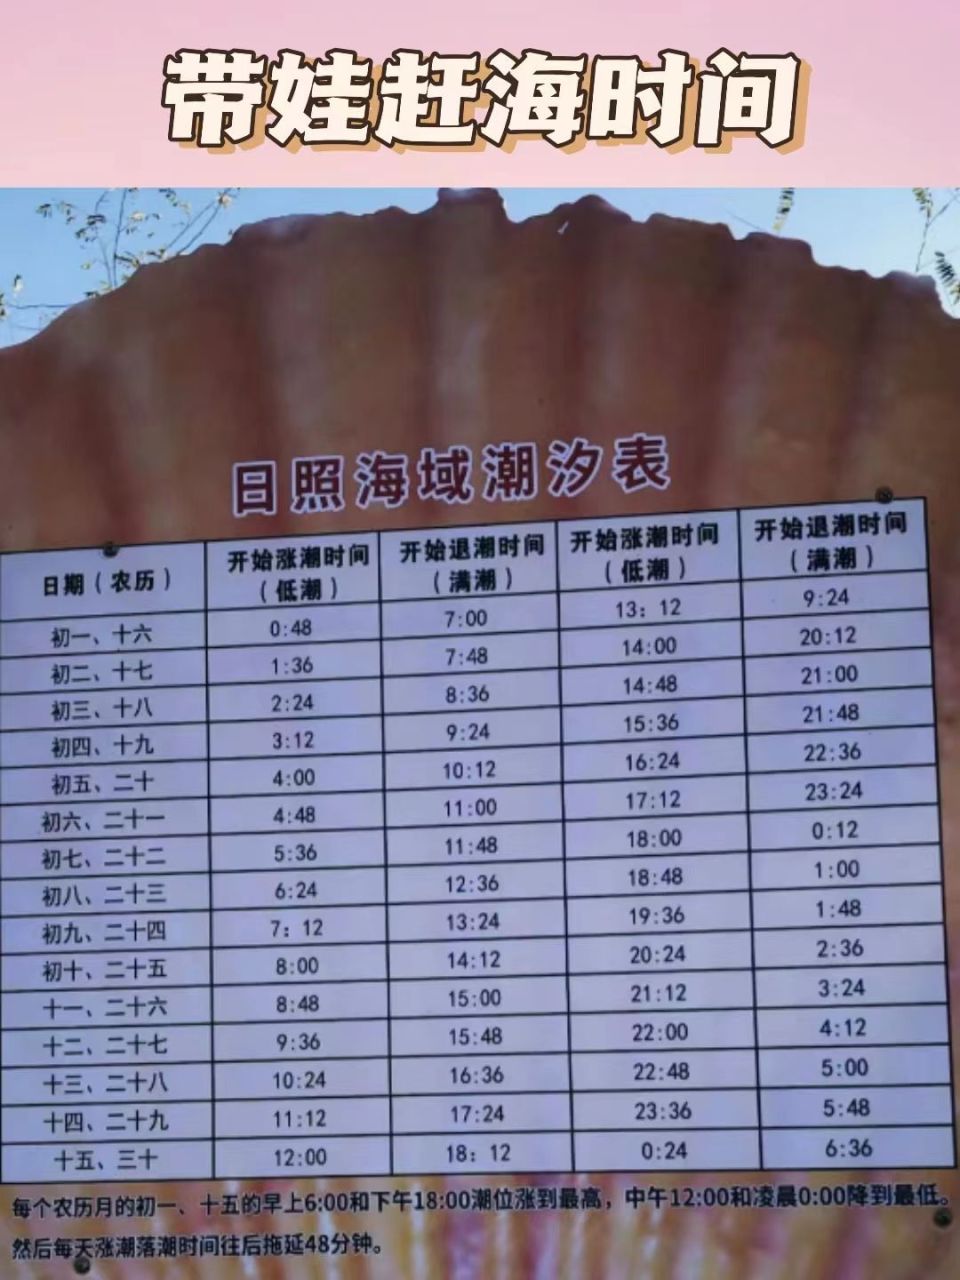 带娃赶海时间
日照海域潮汐表
日期（农历） 开始涨潮时间（低潮） 开始退潮时间（满潮） 开始涨潮时间（低潮） 开始退潮时间（满潮）
初一、十六 0:48 7:00 13：12 9:24
初二、十七 1:36 7:48 14:00 20:12
初三、十八 2:24 8:36 14:48 21:00
初四、十九 3:12 9:24 15:36 21:48
初五、二十 4:00 10:12 16:24 22:36
初六、二十一 4:48 11:00 17:12 23:24
初七、二十二 5:36 11:48 18:00 0:12
初八、二十三 6:24 12:36 18:48 1:00
初九、二十四 7：12 13:24 19:36 1:48
初十、二十五 8:00 14:12 20:24 2:36
十一、二十六 8:48 15:00 21:12 3:24
十二、二十七 9:36 15:48 22:00 4:12
十三、二十八 10:24 16:36 22:48 5:00
十四、二十九 11:12 17:24 23:36 5:48
十五、三十 12:00 18：12 0:24 6:36
每个农历月的初一、十五的早上6:00和下午18:00潮位涨到最高，中午12:00和凌晨0:00降到最低。
然后每天涨潮落潮时间往后拖延48分钟。